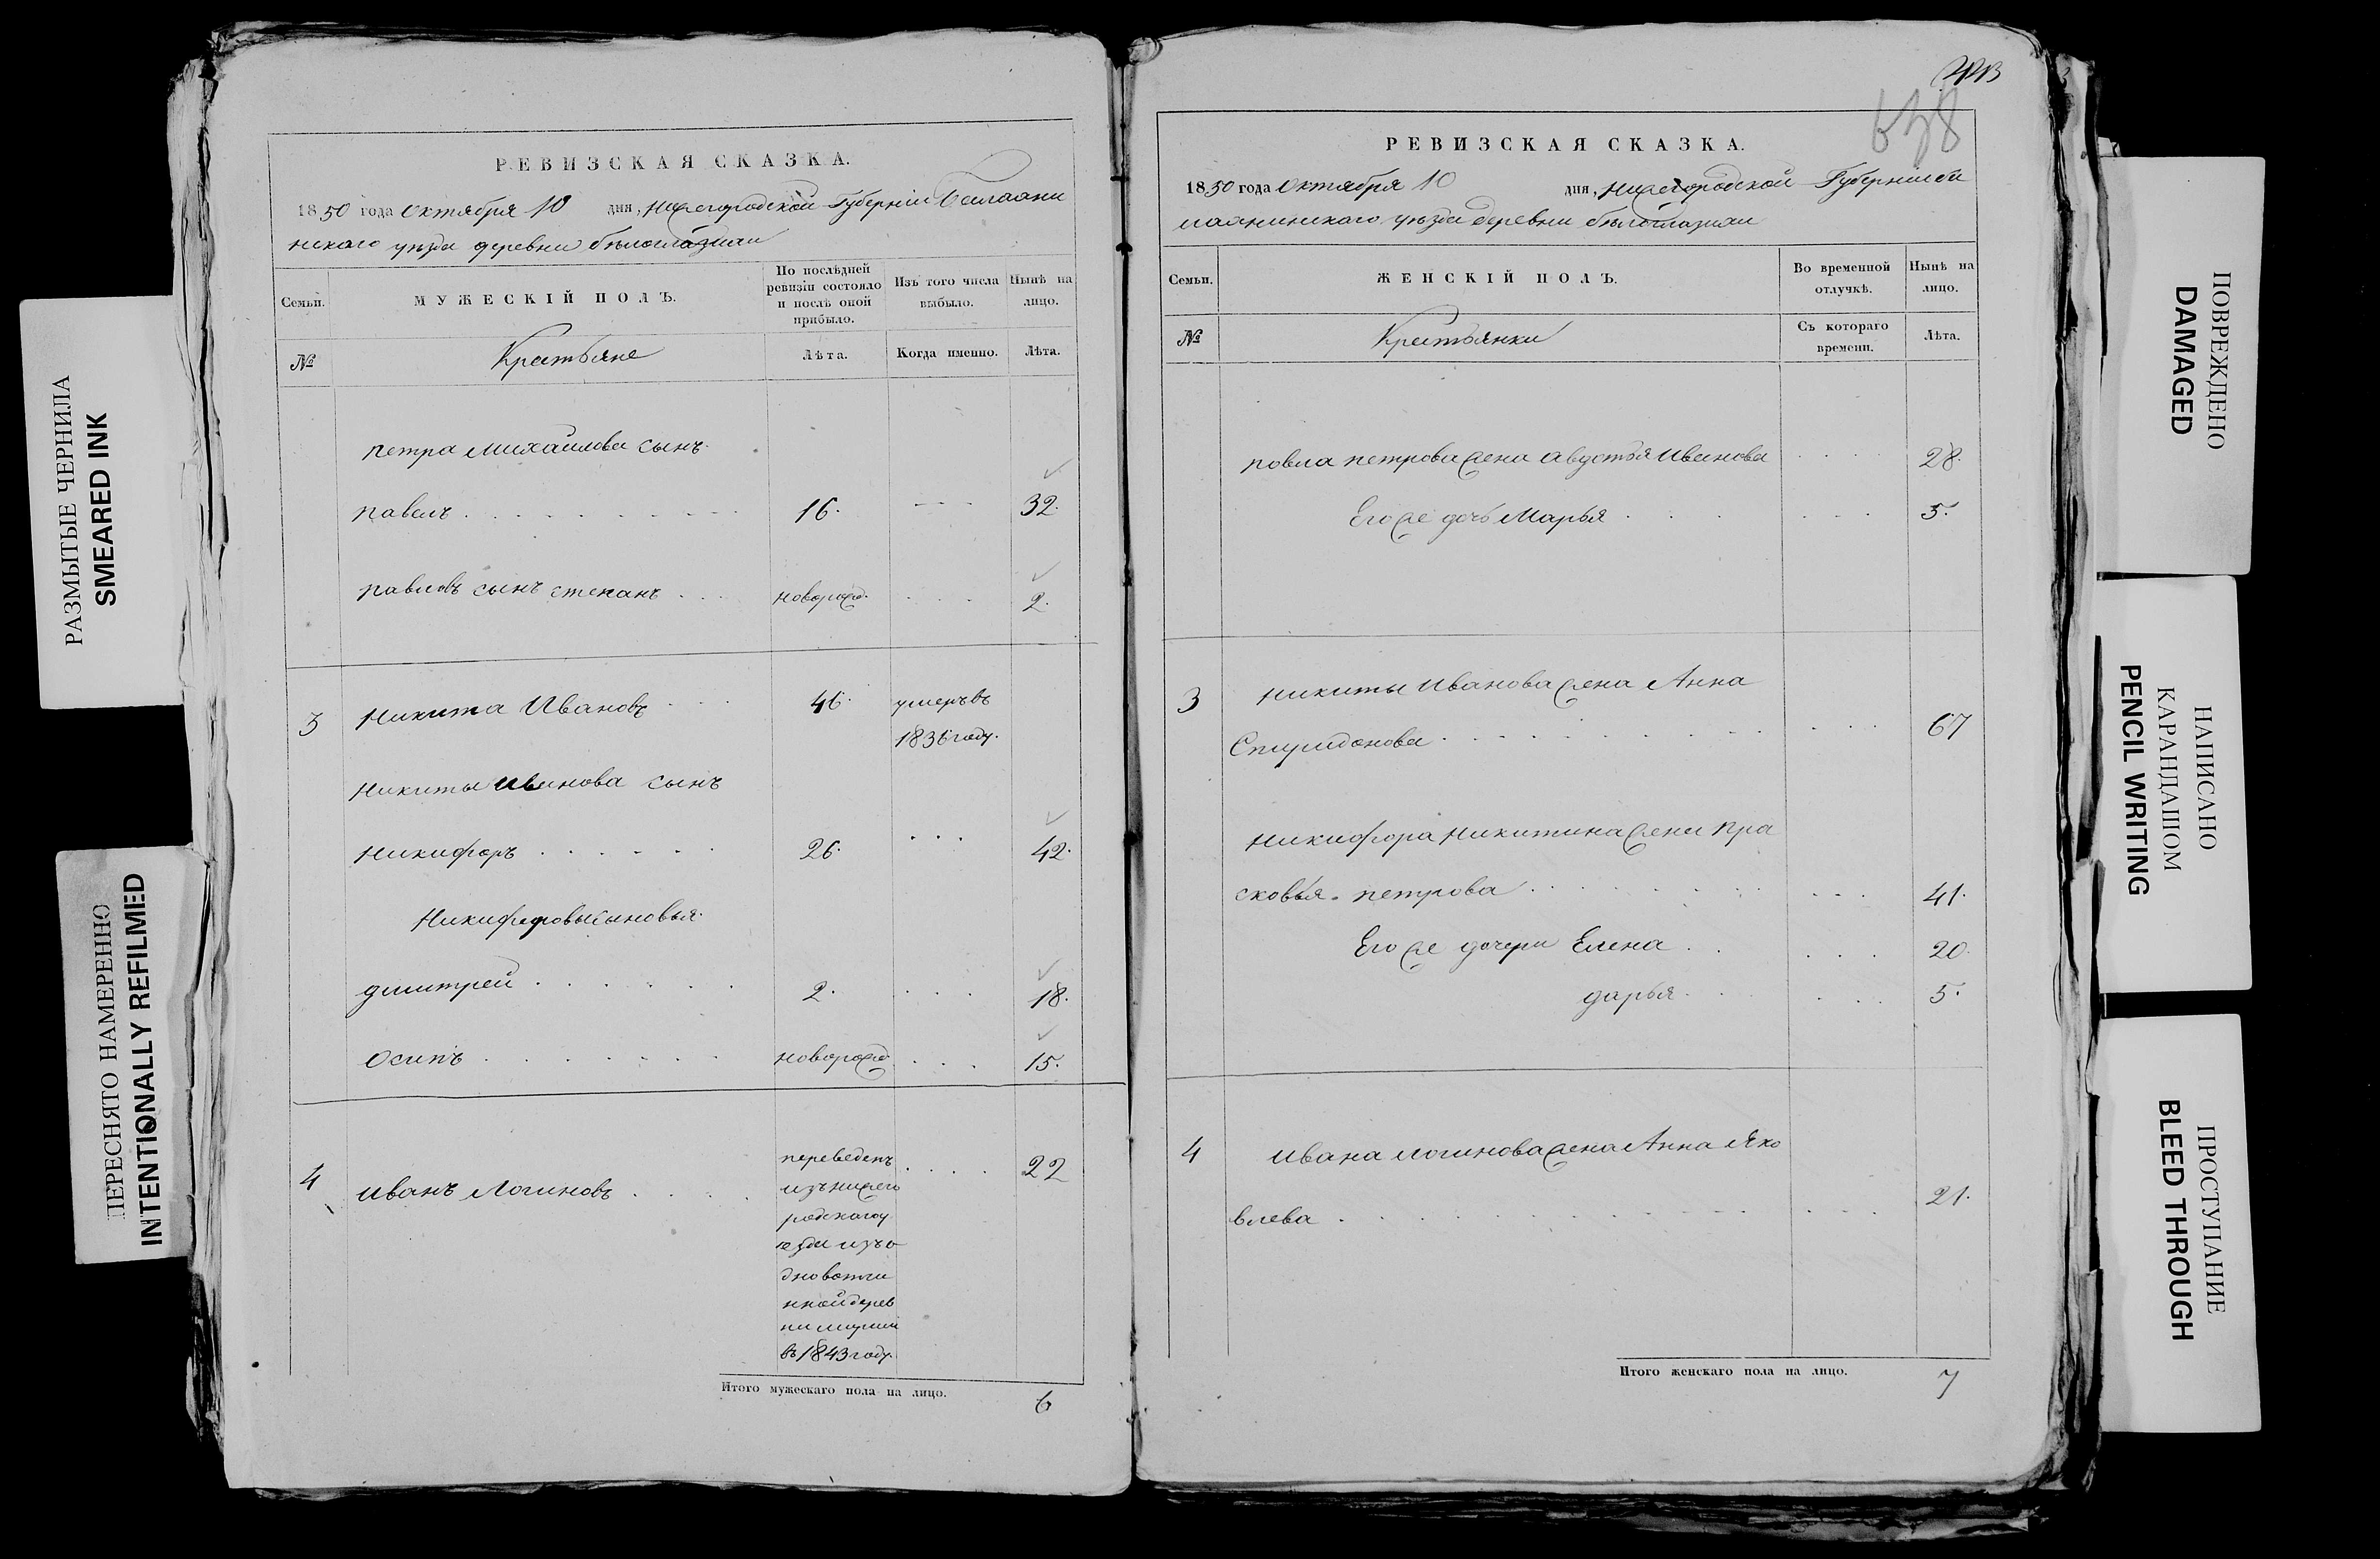 РАЗМЫТЫЕ ЧЕРНИЛА
SMEARED INK
ПЕРЕСНЯТО НАМЕРЕННО
INTENTIONALLY REFILMED
РЕВИЗСКАЯ СКАЗКА.
1850 года Октября 10 дня, Нижегородской Губернiи
нскаго уезда деревни белоглазихи
Семьи.
МУЖЕСКIЙ ПОЛЪ.
По послѣдней ревизiи состояло и послѣ оной прибыло.
Изъ того числа выбыло.
Нынѣ на лицо.
№
Крестьяне
Лѣта.
Когда именно.
Лѣта.
петра Михайлова сынъ
павелъ 16. 32.
павловъ сынъ степанъ новорожд. 2.
3 Никита Ивановъ 46. умеръ въ
1836 году.
Никиты Иванова сынъ
Никифоръ 26. 42.
Никифоровы сыновья
дмитрей 2. 18.
Осипъ новорожд 15.
4 Иванъ Логиновъ 22
переведенъ
изъ нижего
родскаго у
езда изъ о
дновотчи
нной дерев
ни
въ 1843 году.
Итого мужескаго пола на лицо. 6
638
РЕВИЗСКАЯ СКАЗКА.
1850 года Октября 10 дня, Нижегородской Губернiи
уезда деревни белоглазихи
Семьи.
ЖЕНСКIЙ ПОЛЪ.
Во временной отлучкѣ.
Нынѣ на лицо.
№
Крестьянки
Съ котораго времени.
Лѣта.
павла петрова жена Авдотья Иванова 28.
Его же дочь Марья 5.
3 Никиты Иванова жена Анна
Спиридонова 67
Никифора Никитина жена Пра
сковья петрова 41.
Его же дочери Елена 20.
дарья 5.
4 Ивана логинова жена Анна Яко
влева 21.
Итого женскаго пола на лицо. 7
ПОВРЕЖДЕНО
DAMAGED
НАПИСАНО
КАРАНДАШОМ
PENCIL WRITING
ПРОСТУПАНИЕ
BLEED THROUGH